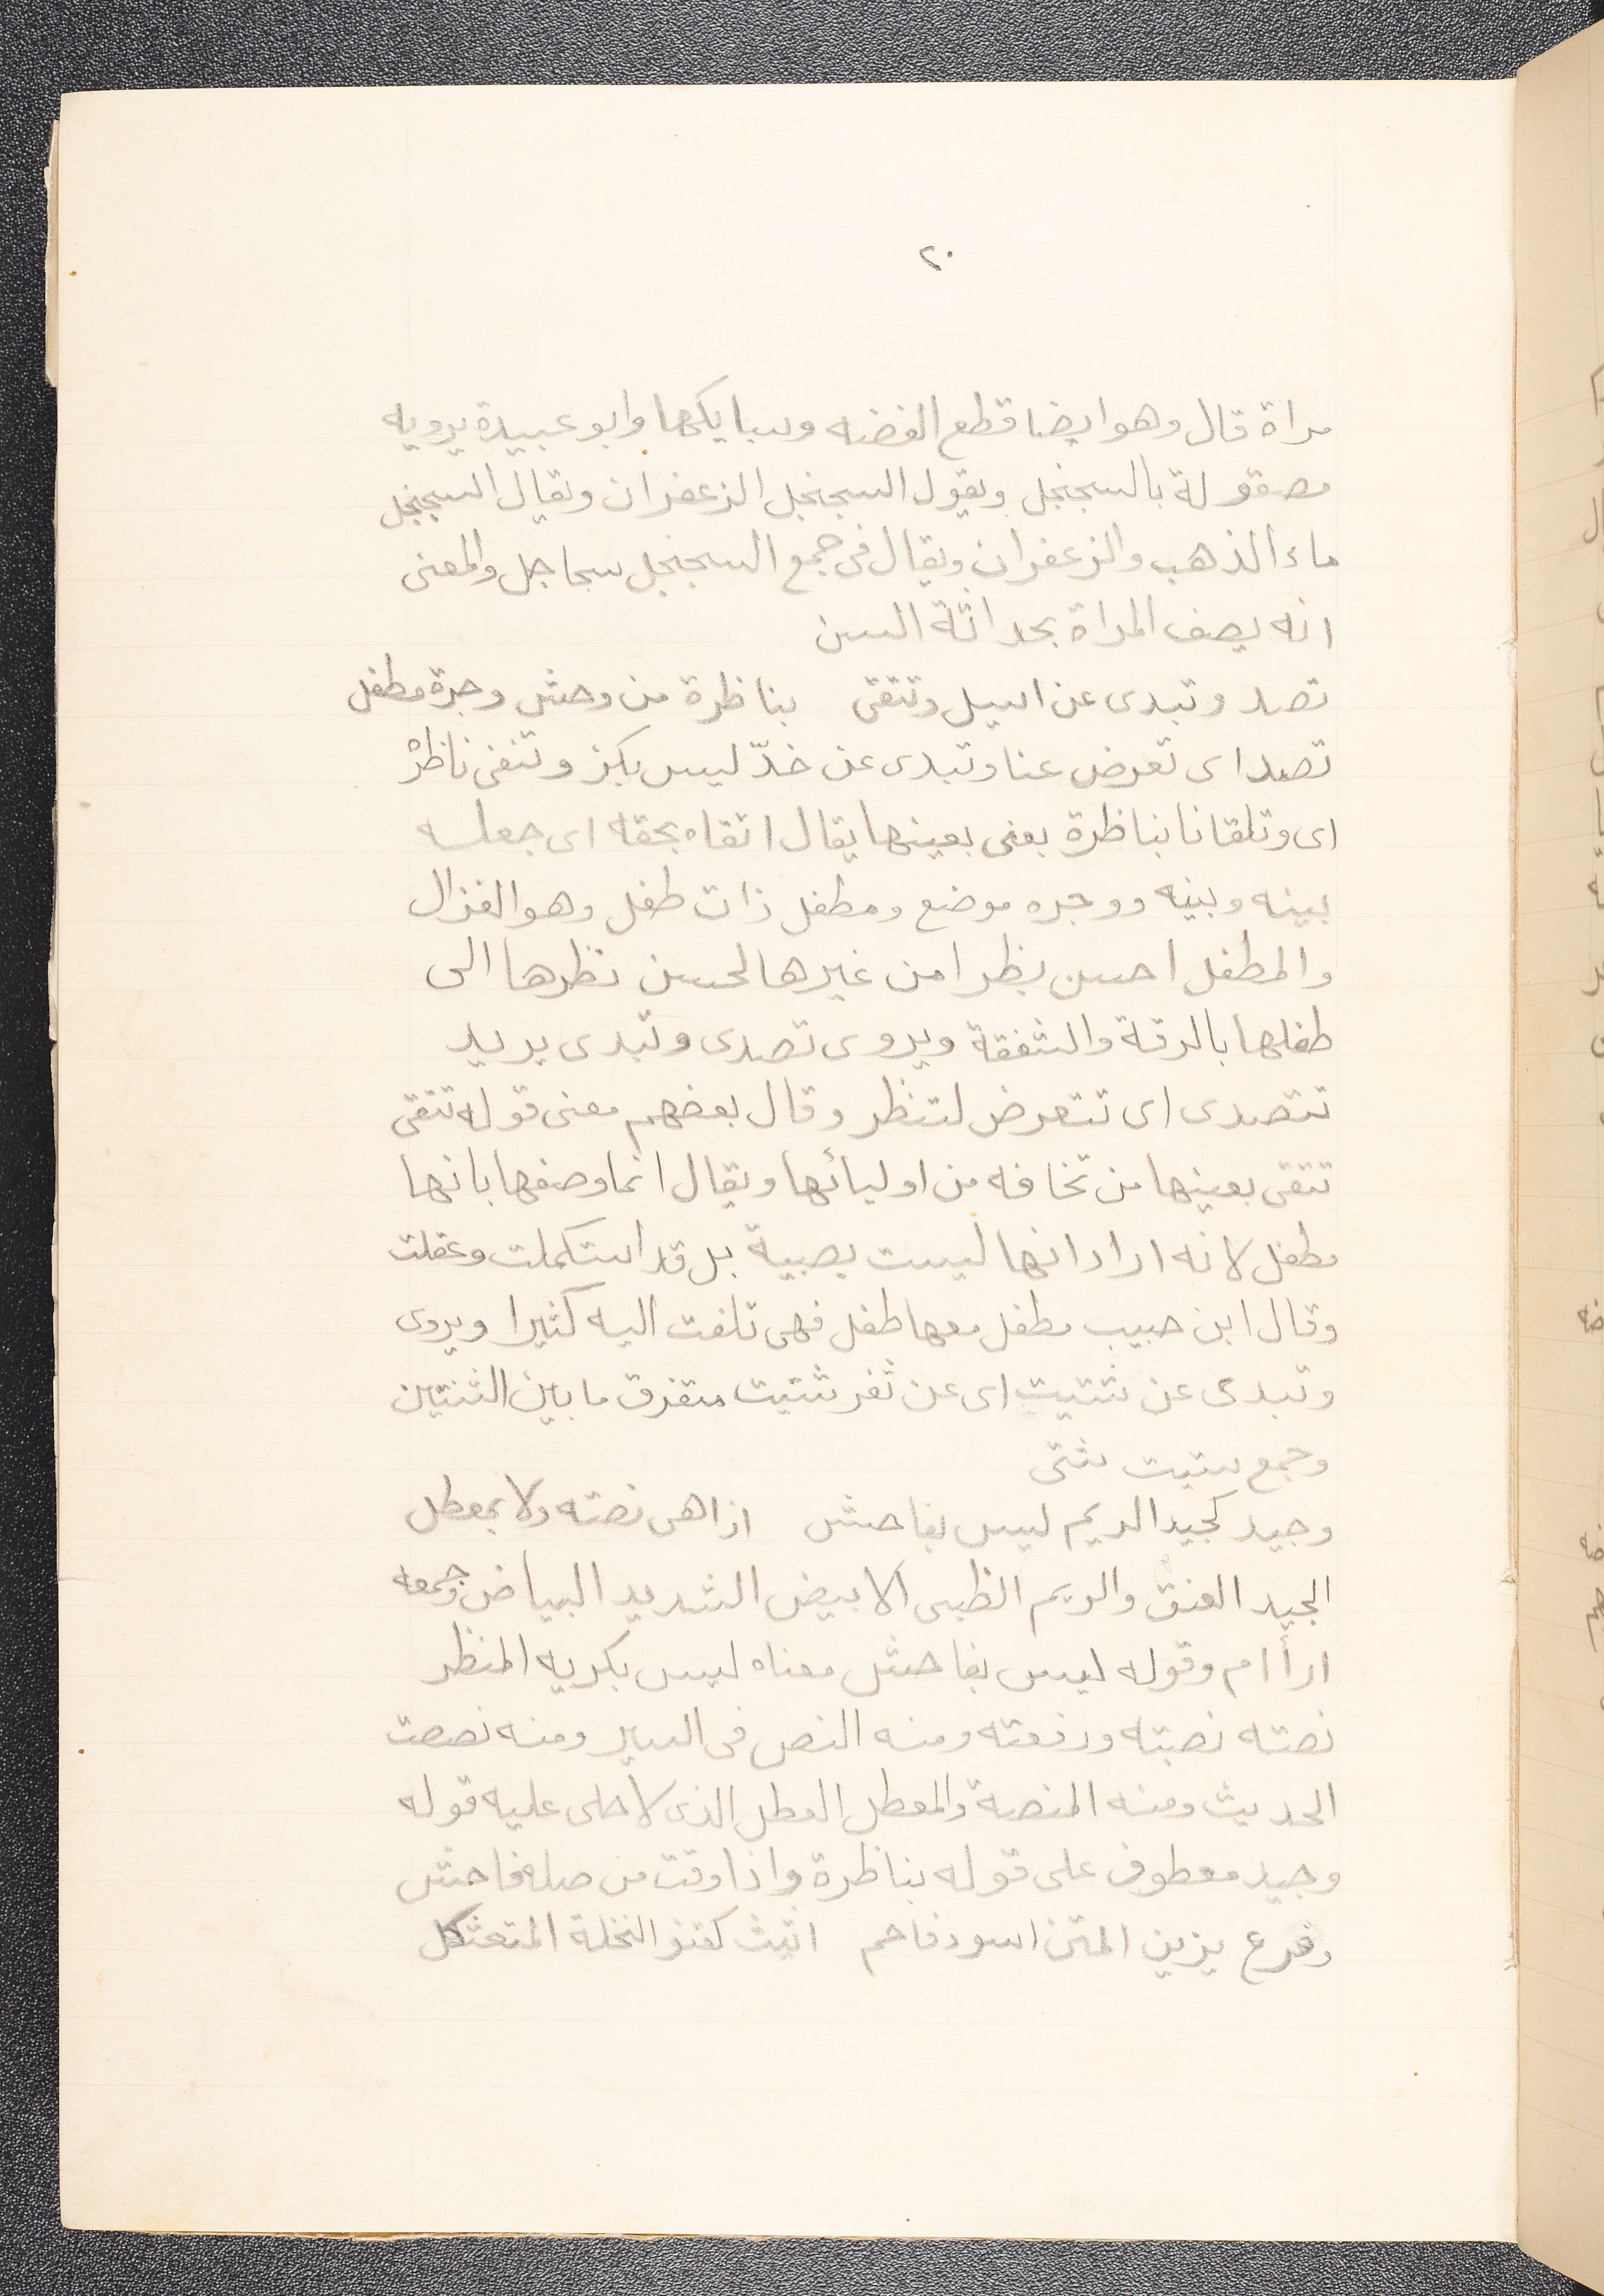 ٢٠
مراة قال وهو ايضا قطع الفضه وسبايكها وابو عبيدة يرويه
مصقولة بالسجنجل ويقول السجنجل الزعفران ويقال السجنجل
ماء الذهب والزعفران ويقال فى جمع السجنجل سجاجل والمعنى
انه يصف المراة بحداثة السن
تصد وتبدى عن اسيل وتتقى بناظرة من وحش وجرة مطفل
تصد اى تعرض عنا وتبدى عن خدّ ليس بكز وتتقى ناظرة
اى وتلقانا بناظرة يعنى بعينها يقال اتقاه بحقه اى جعله
بينه وبينه ووجره موضع ومطفل ذات طفل وهو الغزال
والمطفل احسن نظرا من غيرها لحسن نظرها الى
طفلها بالرقة والشفقة ويروى تصدى وتبدى يريد
تتصدى اى تتعرض لتنظر وقال بعضهم معنى قوله تتقى
تتقى بعينها من تخافه من اوليائها ويقال انما وصفها بانها
مطفل لانه اراد انها ليست بصبية بل قد استكملت وعقلت
وقال ابن حبيب مطفل معها طفل فهى تلفت اليه كثيرا ويروى
وتبدى عن شتيت اى عن ثغر شتيت متفرق ما بين الثنتين
وجمع ستيت شتى
وجيد كجيد الريم ليس بفاحش اذا هى نصته ولا بمعطل
الجيد العنق والريم الظبى الابيض الشديد البياض وجمعه
ارأام وقوله ليس بفاحش معناه ليس بكريه المنظر
نصته نصبته ورفعته ومنه النص فى السير ومنه نصصت
الحديث ومنه المنصة والمعطل العطل الذى لا حلى عليه قوله
وجيد معطوف على قوله بناظرة واذا وقت من صله فاحش
وفرع يزين المتن اسود فاحم اثيث كقنو النخلة المتعثكل